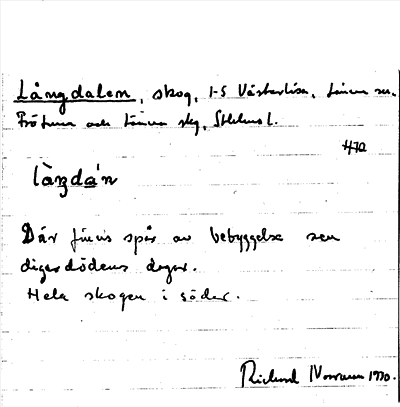 Långdalen, skog, 1-5 Västerlisa, Länna sn.
Frötuna och Länna skg, Sthlms l.
470
làṇdán
Där finns spår av bebyggelse sen
digerdödens dagar.
Hela skogen i söder.
Rickard Norman 1970.